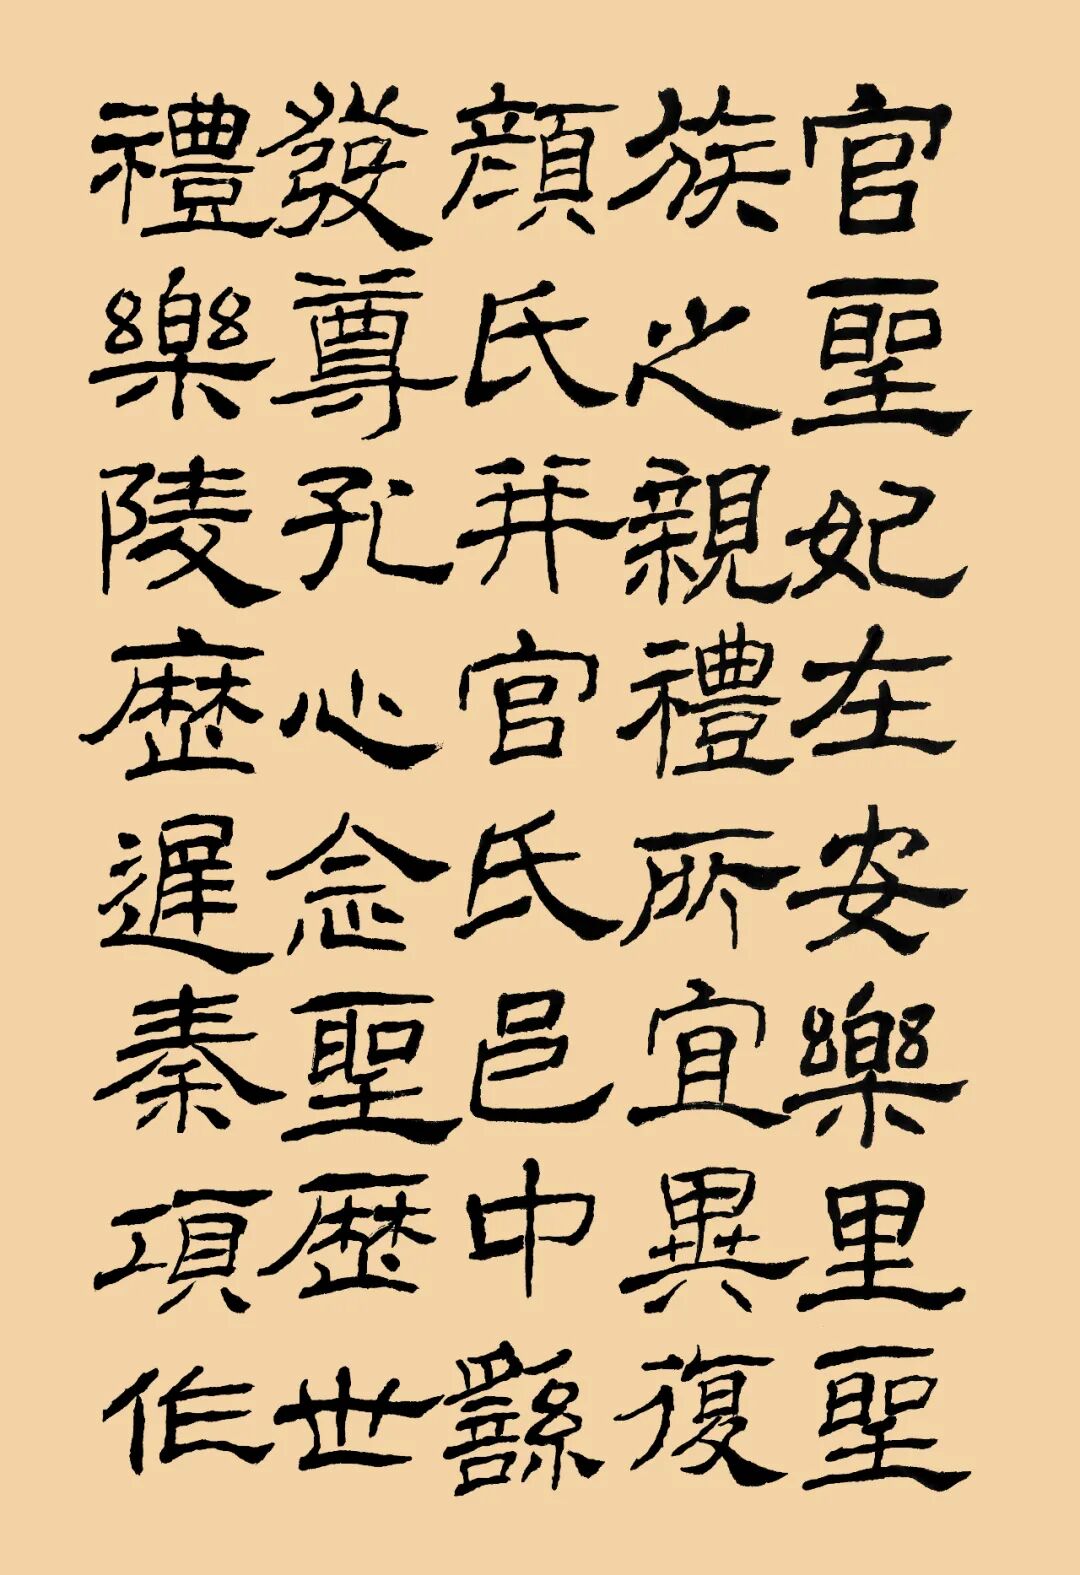 官聖妃在安樂里聖
族之親禮所宜異復
顏氏并官氏邑中繇
發尊孔心念聖歷世
禮樂陵遅秦項作